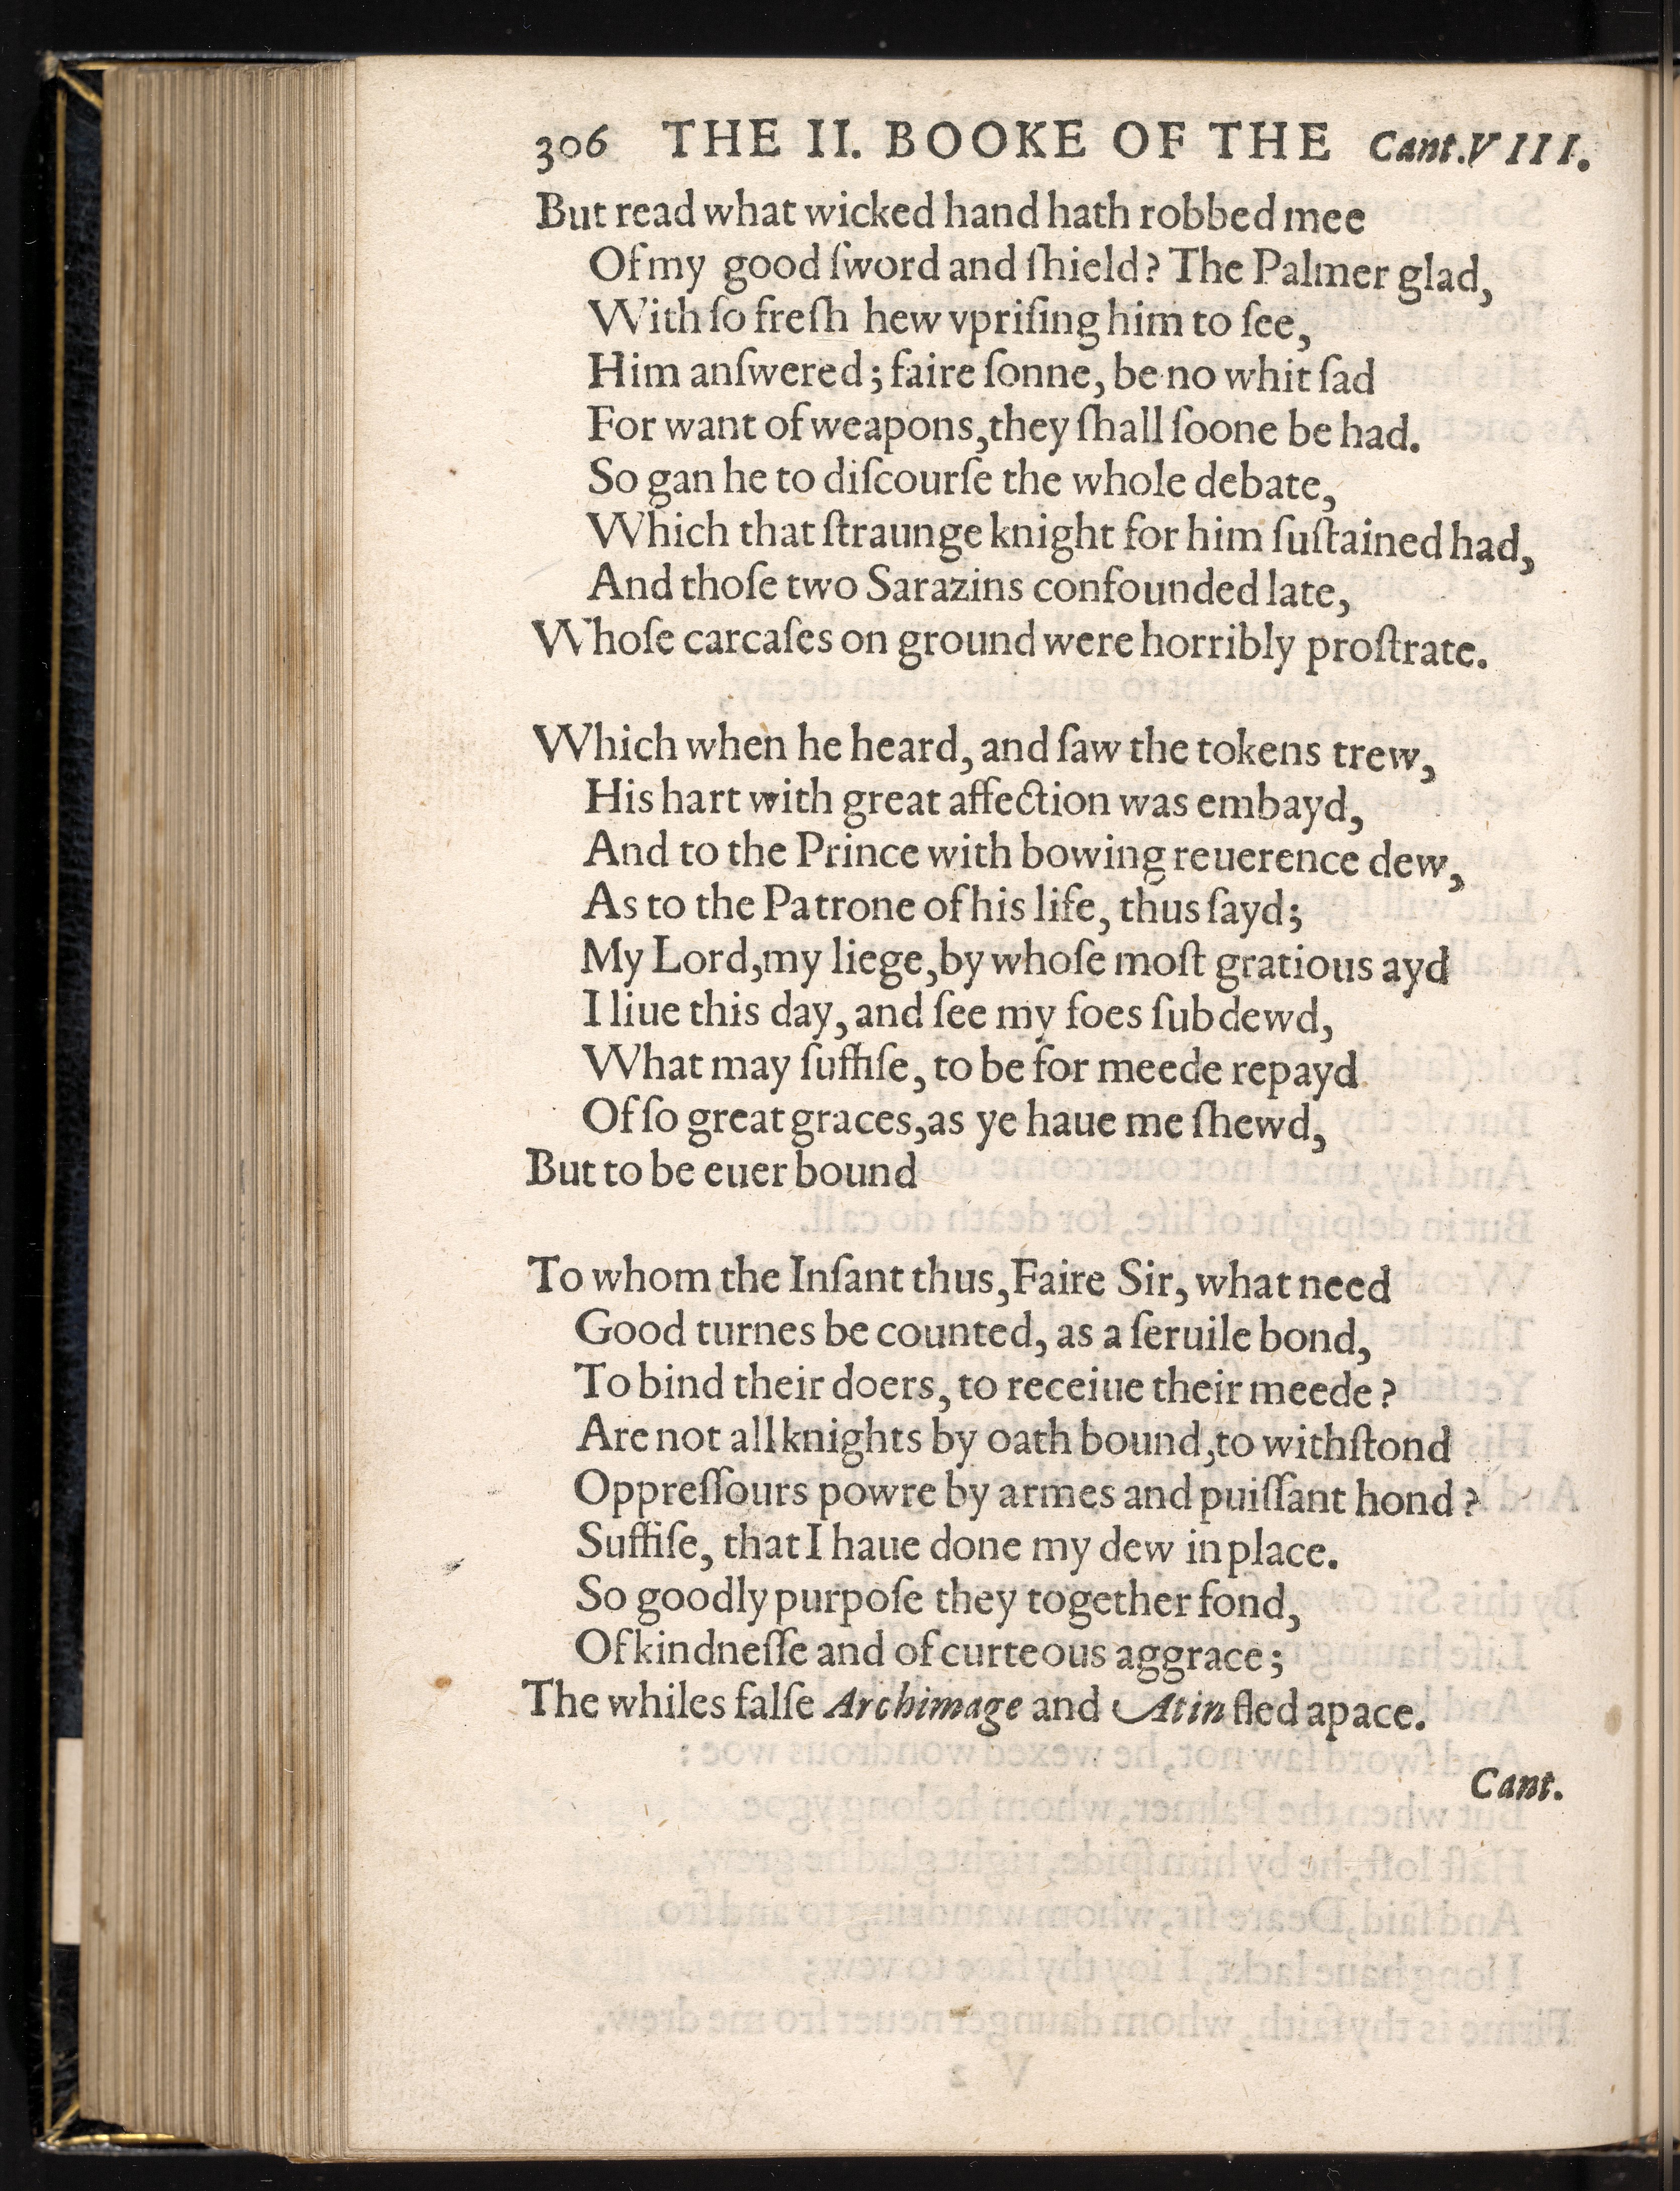 306 THE II. BOOKE OF THE Cant.VIII.
But read what wicked hand hath robbed mee
Of my good ſword and ſhield? The Palmer glad,
With ſo freſh hew vpriſing him to ſee,
Him anſwered; faire ſonne, be no whit ſad
For want of weapons, they ſhall ſoone be had.
So gan he to diſcourſe the whole debate,
Which that ſtraunge knight for him ſuſtained had,
And thoſe two Sarazins confounded late,
Whoſe carcaſes on ground were horribly proſtrate.
Which when he heard, and ſaw the tokens trew,
His hart with great affection was embayd,
And to the Prince with bowing reuerence dew,
As to the Patrone of his life, thus ſayd;
My Lord, my liege, by whoſe moſt gratious ayd
I liue this day, and ſee my foes ſubdewd,
What may ſuffiſe, to be for meede repayd
Of ſo great graces, as ye haue me ſhewd,
But to be euer bound
To whom the Infant thus, Faire Sir, what need
Good turnes be counted, as a ſeruile bond,
To bind their doers, to receiue their meede?
Are not all knights by oath bound, to withſtond
Oppreſſours powre by armes and puiſſant hond?
Suffiſe, that I haue done my dew in place.
So goodly purpoſe they together fond,
Of kindneſſe and of curteous aggrace;
The whiles falſe Archimage and Atin fled apace.
Cant.